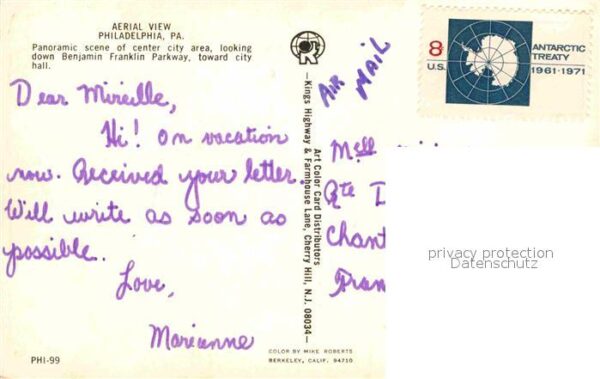 AERIAL VIEW
PHILADELPHIA, PA.
Panoramic scene of center city area, looking
down Benjamin Franklin Parkway, toward city
hall.
Dear Mireille,
Hi! On vacation
now. Received your letter.
Will write as soon as
possible.
Love,
Marianne
PHI-99
AIR
MAIL
Art Color Card Distributors
—Kings Highway & Farmhouse Lane, Cherry Hill, N.J. 08034—
COLOR BY MIKE ROBERTS
BERKELEY, CALIF. 94710
8¢
U.S.
ANTARCTIC
TREATY
1961-1971
Mell
Rte
Chant
Fran
privacy protection
Datenschutz